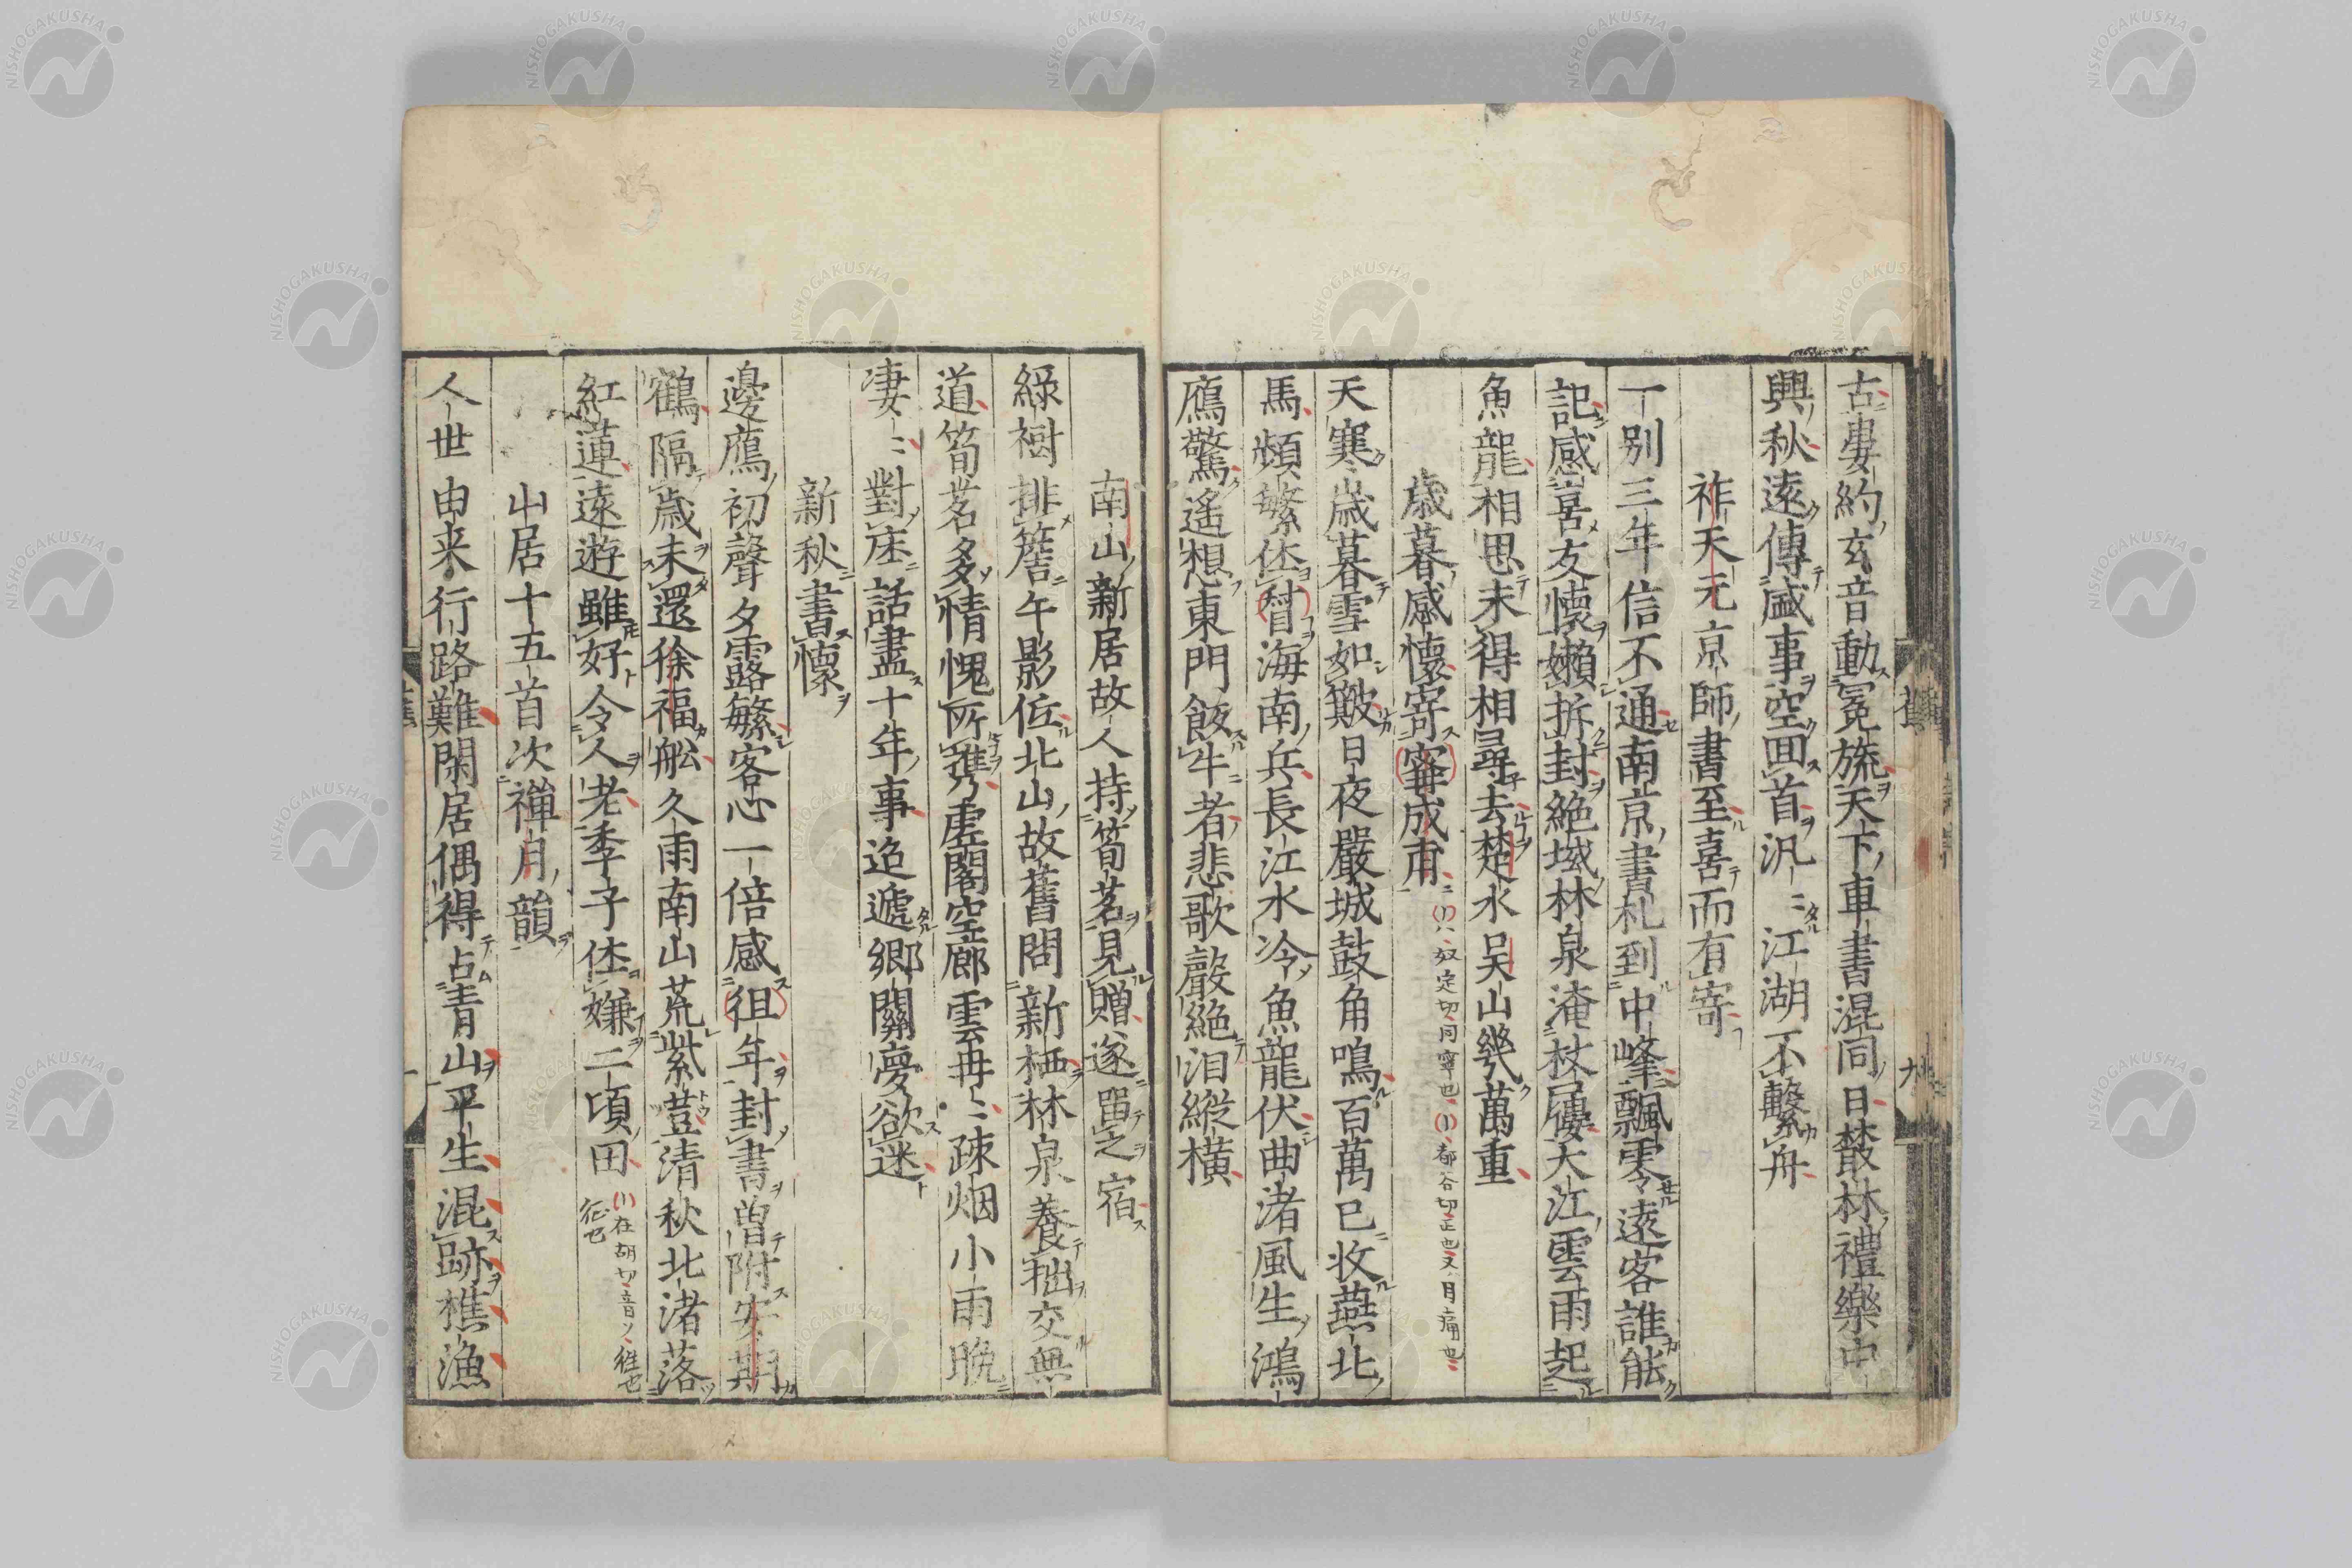 古婁約玄音動冕旒天下車書混同日叢林禮樂中
興秋遠傳盛事空回首汎〻江湖不繫舟
祚天元京師書至喜而有寄
一別三年信不通南京書札到中峰飄零遠客誰能
記感喜友懷嬾拆封絶域林泉淹杖屨大江雲雨起
魚龍相思未得相尋去楚水吳山幾萬重
歳暮感懷寄寗成甫
奴定切同寧也 都合切正也又月痛也
天寒歳暮雪如皷日夜嚴城鼓角鳴百萬已收燕北
馬頻繁休𣈆海南兵長江水冷魚龍伏曲渚風生鴻
鴈驚遙想東門飯牛者悲歌聲絶泪縱橫
南山新居故人持筍茗見贈遂畱之宿
綠樹排簷午影低北山故舊問新栖林泉養拙交無
道筍茗多情愧所攜乃虛閣空廊雲冉〻疎烟小雨晚
凄〻對床話盡十年事迢遞鄉關夢欲迷
新秋書懷
邊鴈初聲夕露繁客心一倍感徂年封書曽附安期
鶴隔歳未還徐福舩久雨南山荒紫荳清秋北渚落
紅蓮遠遊雖好令人老季子休嫌二頃田
在胡切音ソ徃也
征也
山居十五首次禪月韻
人世由来行路難閑居偶得占青山平生混跡樵漁